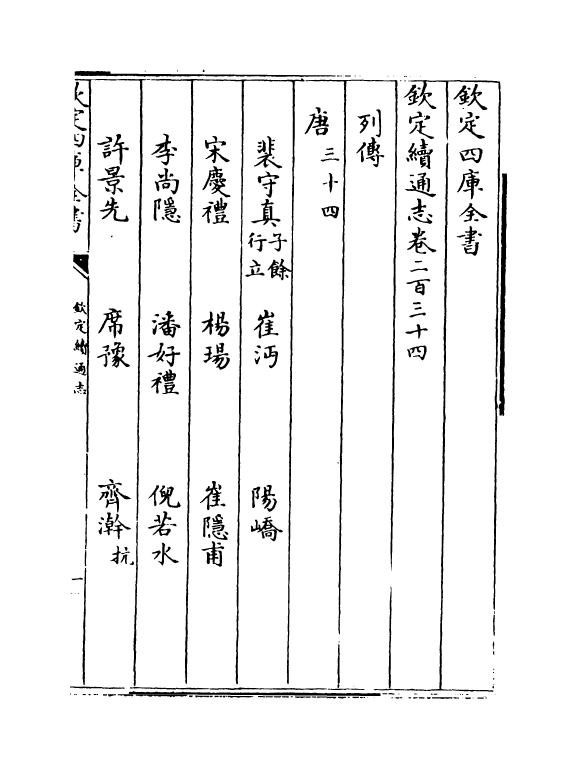 欽定四庫全書
欽定續通志卷二百三十四
列傳
唐三十四
裴守真子餘行立 崔沔 陽嶠
宋慶禮 楊瑒 崔隱甫
李尚隱 潘好禮 倪若水
許景先 席豫 齊澣抗
欽定四庫全書 欽定續通志 一